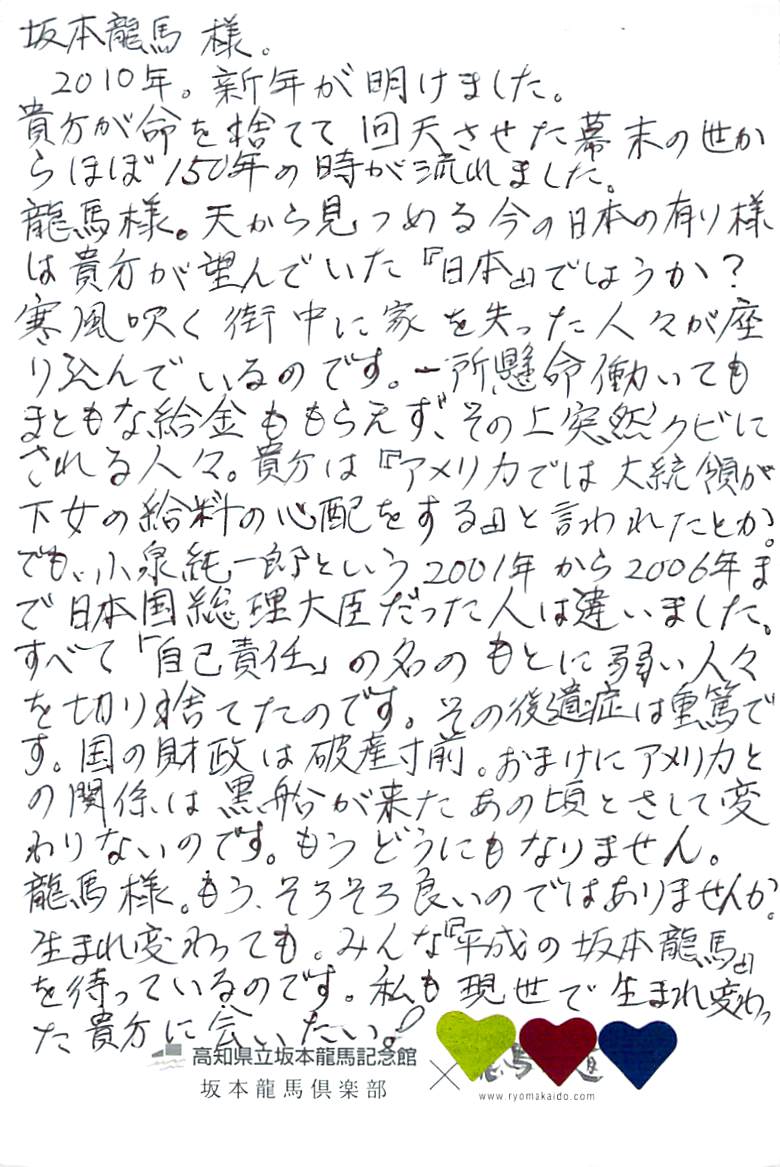 坂本龍馬 様。
2010年。新年が明けました。
貴方が命を捨てて回天させた幕末の世か
らほぼ150年の時が流れました。
龍馬様。天から見つめる今の日本の有り様
は貴方が望んでいた『日本』でしょうか?
寒風吹く街中に家を失った人々が座
り込んでいるのです。一所懸命働いても
まともな給金ももらえず、その上突然クビに
される人々。貴方は『アメリカでは大統領が
下女の給料の心配をする』と言われたとか。
でも、小泉純一郎という2001年から2006年ま
で日本国総理大臣だった人は違いました。
すべて「自己責任」の名のもとに弱い人々
を切り捨てたのです。その後遺症は重篤で
す。国の財政は破産寸前。おまけにアメリカと
の関係は黒船が来たあの頃とさして変
わりないのです。もうどうにもなりません。
龍馬様。もう、そろそろ良いのではありませんか。
生まれ変わっても。みんな『平成の坂本龍馬』
を待っているのです。私も現世で生まれ変わっ
た貴方に会いたい。!
高知県立坂本龍馬記念館
坂本龍馬倶楽部
×
www.ryomakaido.com